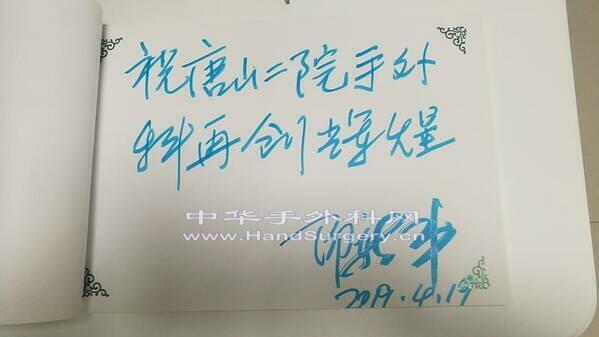 祝唐山二院手外
科再创辉煌
中华手外科网
www.HandSurgery.cn
2019.4.19